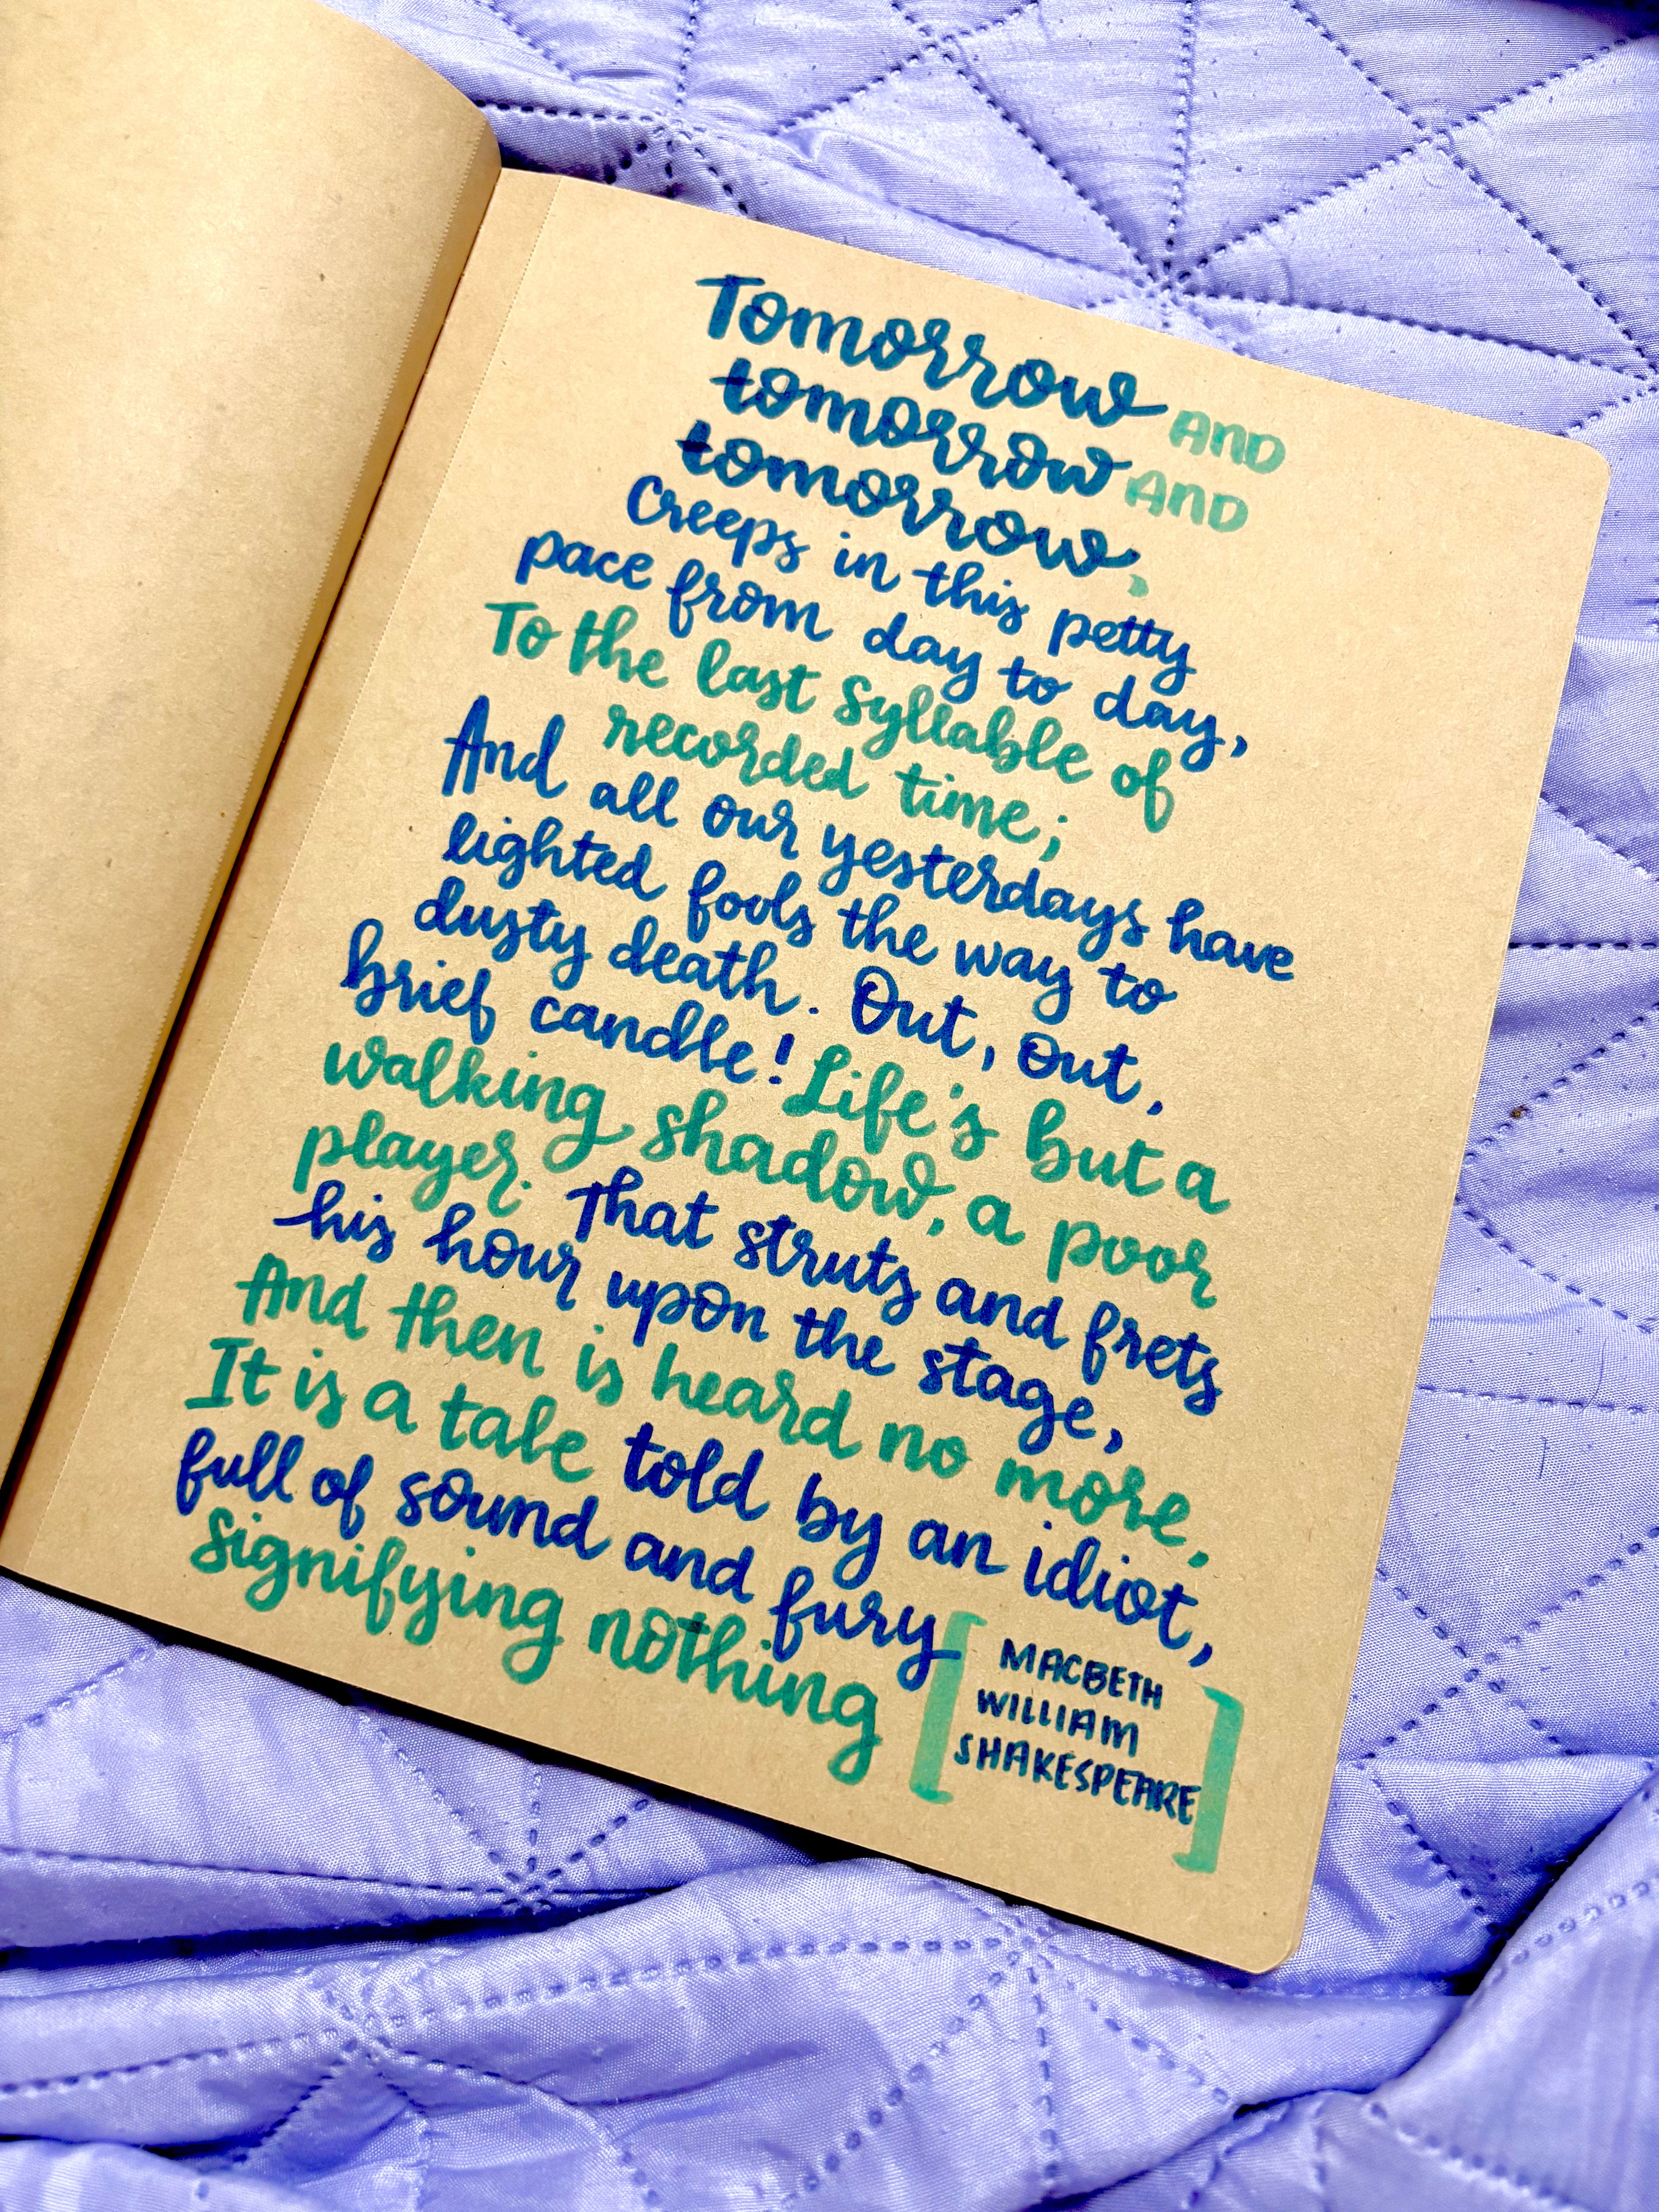 Tomorrow AND
tomorrow AND
tomorrow,
Creeps in this petty
pace from day to day,
To the last syllable of
recorded time;
And all our yesterdays have
lighted fools the way to
dusty death. Out, out,
brief candle! Life's but a
walking shadow, a poor
player. That struts and frets
his hour upon the stage,
And then is heard no more.
It is a tale told by an idiot,
full of sound and fury
signifying nothing
[MACBETH
WILLIAM
SHAKESPEARE]